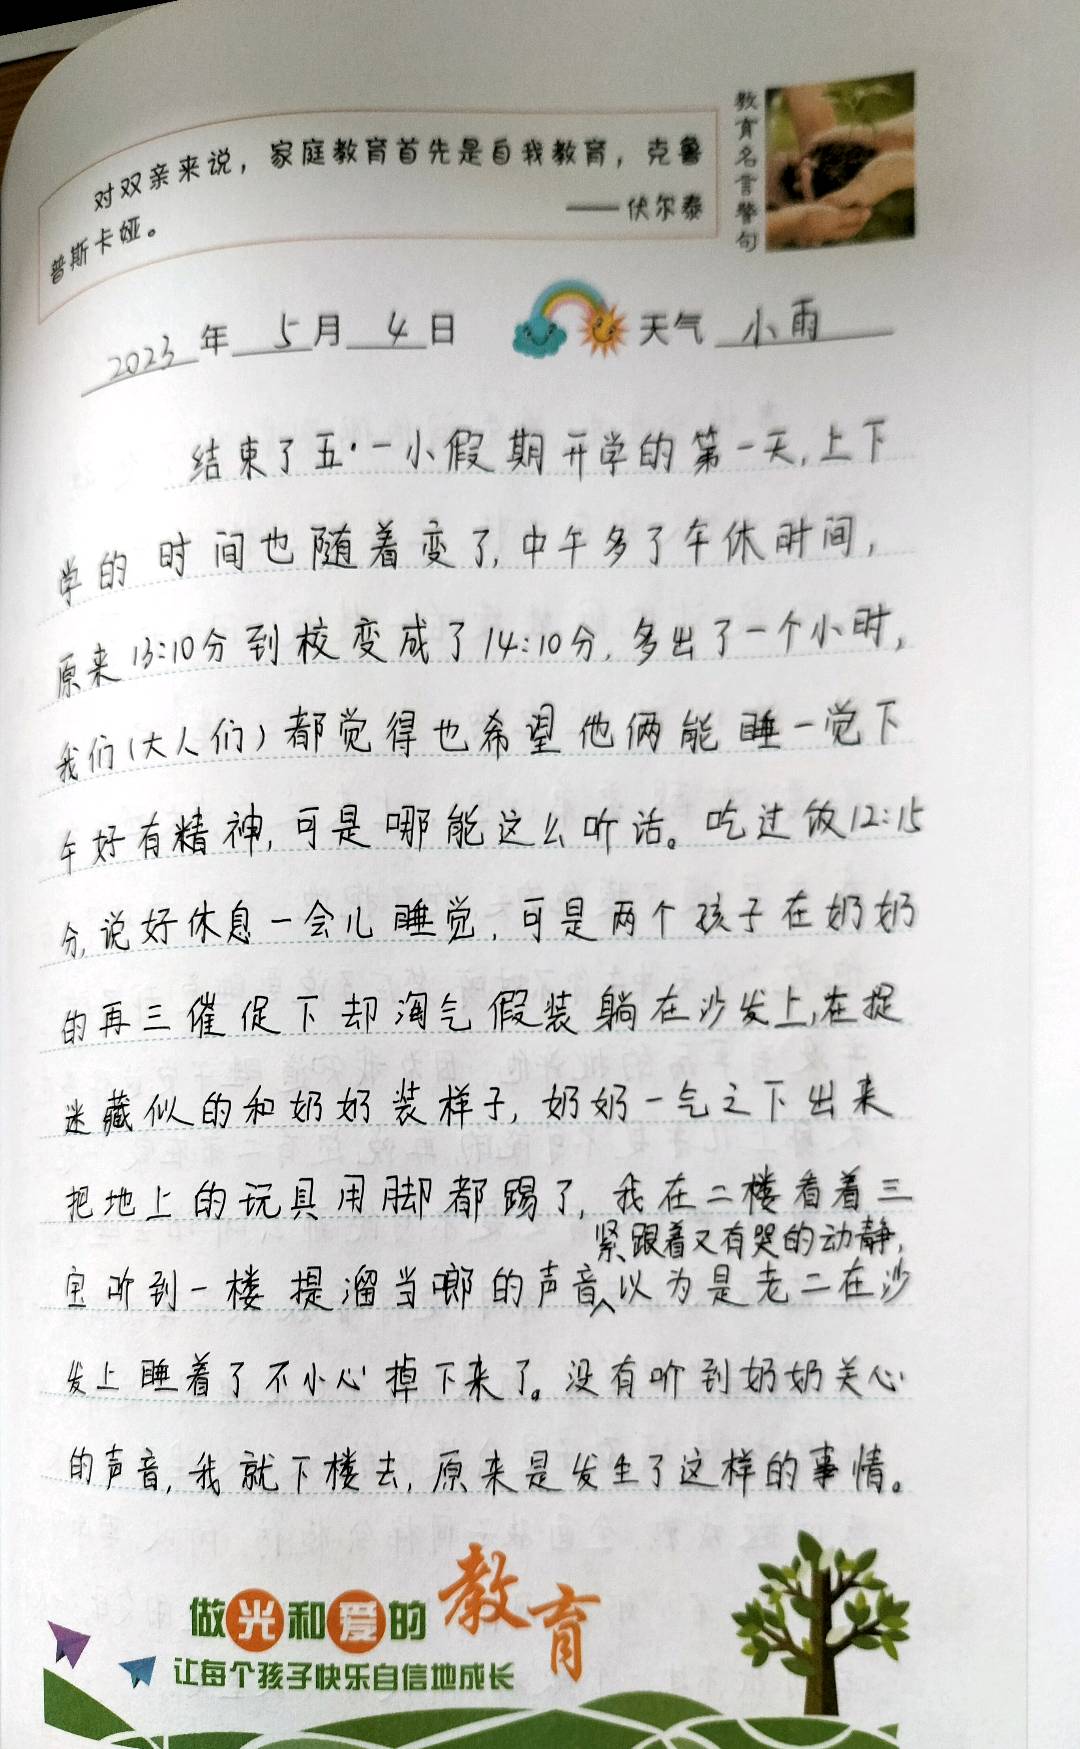 对双亲来说，家庭教育首先是自我教育，克鲁
普斯卡娅。
——伏尔泰
教育名言警句
2023年 5月 4日 天气 小雨
结束了五·一小假期开学的第一天,上下
学的时间也随着变了,中午多了午休时间,
原来13:10分到校变成了14:10分,多出了一个小时,
我们(大人们)都觉得也希望他俩能睡一觉下
午好有精神,可是哪能这么听话。吃过饭12:15
分,说好休息一会儿睡觉,可是两个孩子在奶奶
的再三催促下却淘气假装躺在沙发上,在捉
迷藏似的和奶奶装样子,奶奶一气之下出来
把地上的玩具用脚都踢了,我在二楼看着三
紧跟着又有哭的动静,
宝听到一楼提溜当啷的声音,以为是老二在沙
发上睡着了不小心掉下来了。没有听到奶奶关心
的声音,我就下楼去,原来是发生了这样的事情。
做光和爱的教育
让每个孩子快乐自信地成长